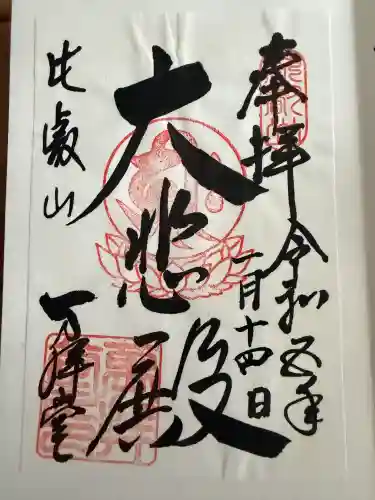 奉拝
令和五年
一月十四日
大悲殿
比叡山
万拝堂